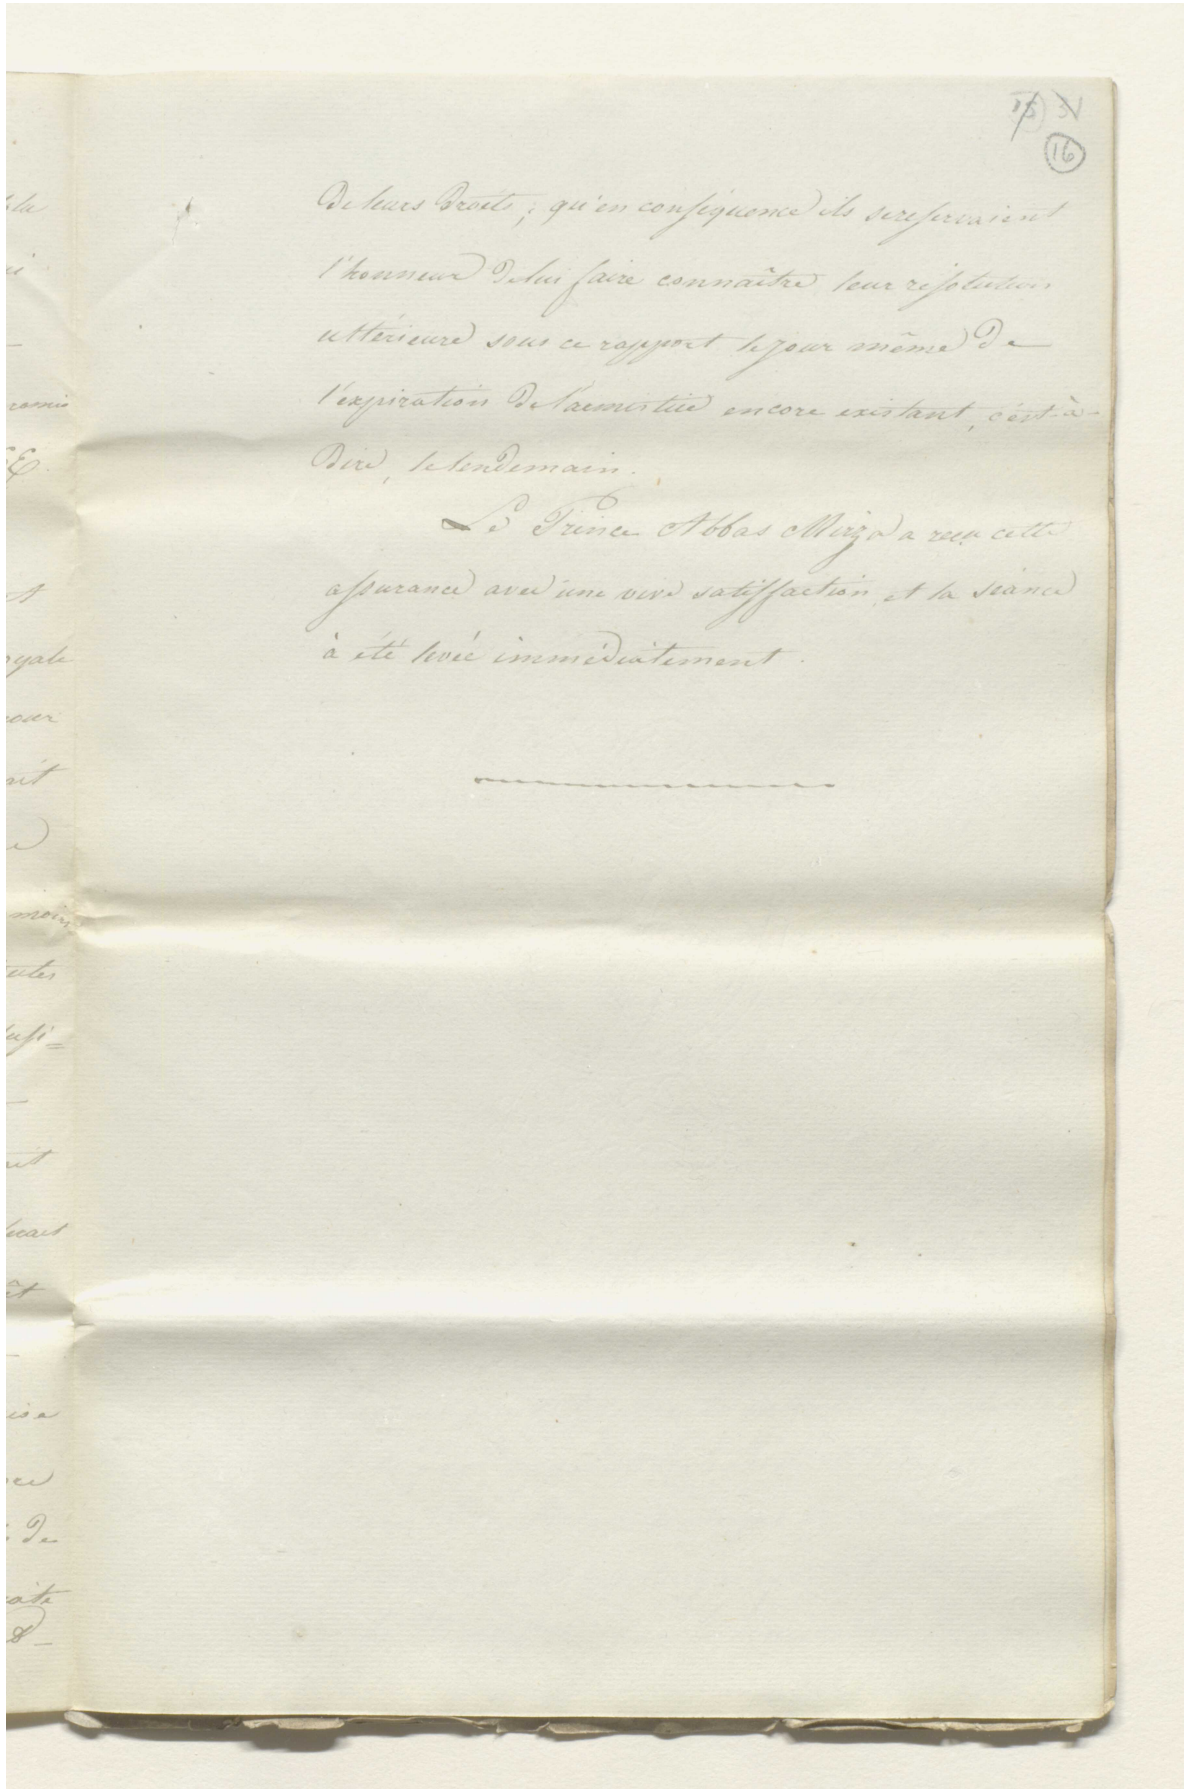 16
de leurs droits; qu'en conséquence ils se reservaient
l'honneur de lui faire connaître leur résolution
ultérieure sous ce rapport le jour même de
l'expiration de l'armistice encore existant, c'est-à-
dire, le lendemain.
Le Prince Abbas Mirza a reçu cette
assurance avec une vive satisfaction et la séance
à été levée immédiatement.
la
romis
oyale
pour
moins
utes
de